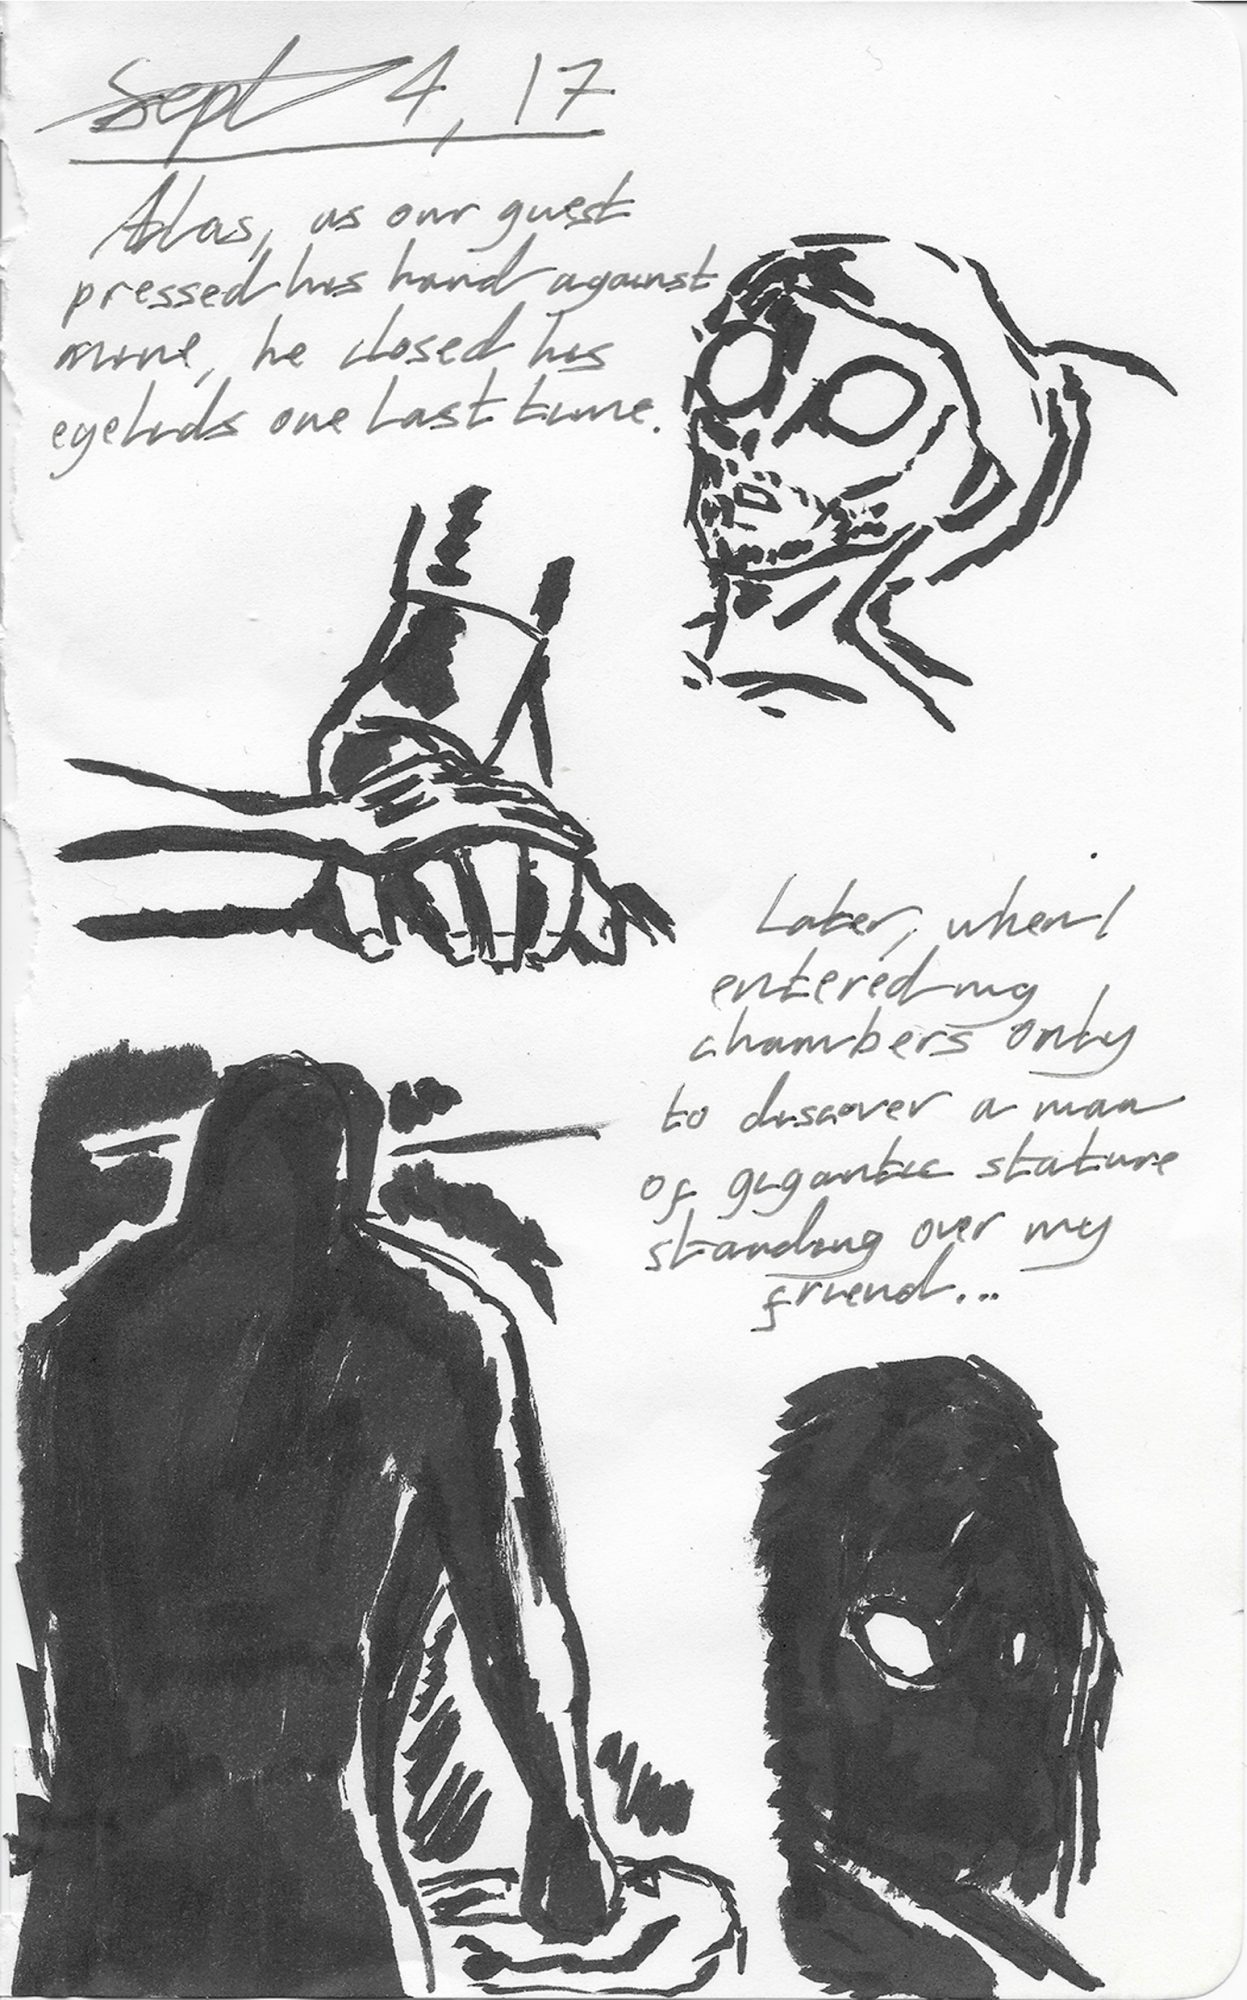 Sept 4, 17
Alas, as our guest
pressed his hand against
mine, he closed his
eyelids one last time.
Later, when I
entered my
chambers only
to discover a man
of gigantic stature
standing over my
friend...